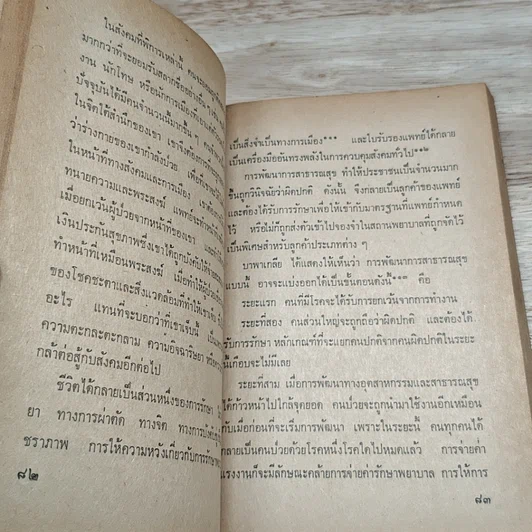 ในสังคมที่พิการเหล่านี้
มากกว่าที่จะยอมรับสลากชื่ออย่างอื่น
งาน นักโทษ หรือนักการเมือง
ปัจจุบันได้มีคนจำนวนมากขึ้น
ในจิตใต้สำนึกของเขา เขาจึงต้องการ
ว่าร่างกายของเขากำลังป่วย
ในหน้าที่ทางสังคมและการเมือง
ทนายความและพระสงฆ์ แพทย์จะทำหน้าที่
เมื่อยกเว้นผู้ป่วยจากหน้าที่ของเขา
เงินประกันสุขภาพซึ่งเขาได้ถูกบังคับให้
ทำหน้าที่เหมือนพระสงฆ์ เมื่อทำให้ผู้ป่วย
ของโชคชะตาและสิ่งแวดล้อมที่ทำให้เขา
อะไร แทนที่จะบอกว่าที่เขาเจ็บนี้
ความตะกละตะกลาม ความอิจฉาริษยา
กล้าต่อสู้กับสังคมอีกต่อไป
ชีวิตได้กลายเป็นส่วนหนึ่งของการรักษา
ยา ทางการผ่าตัด ทางจิต
ชราภาพ การให้ความหวังเกี่ยวกับการรักษา
๘๒
เป็นสิ่งจำเป็นทางการเมือง*** และใบรับรองแพทย์ได้กลาย
เป็นเครื่องมืออันทรงพลังในการควบคุมสังคมทั่วไป
การพัฒนาการสาธารณสุข ทำให้ประชาชนเป็นจำนวนมาก
ขึ้นถูกวินิจฉัยว่าผิดปกติ ดังนั้น จึงกลายเป็นลูกค้าของแพทย์
และต้องได้รับการรักษาเพื่อให้เข้ากับมาตรฐานที่แพทย์กำหนด
ไว้ หรือไม่ก็ถูกส่งตัวเข้าไปจองจำในสถานพยาบาลที่ถูกจัดไว้
เป็นพิเศษสำหรับลูกค้าประเภทต่าง ๆ
บาพาเกลีย ได้แสดงให้เห็นว่า การพัฒนาการสาธารณสุข
แบบนี้ อาจจะแบ่งออกได้เป็นขั้นตอนดังนี้ คือ
ระยะแรก คนที่มีโรคจะได้รับการยกเว้นจากการทำงาน
ระยะที่สอง คนส่วนใหญ่จะถูกถือว่าผิดปกติ และต้องได้
รับการรักษา หลักเกณฑ์ที่จะแยกคนปกติจากคนผิดปกติในระยะ
นี้เกือบจะไม่มีเลย
ระยะที่สาม เมื่อการพัฒนาทางอุตสาหกรรมและสาธารณสุข
ได้ก้าวหน้าไปใกล้จุดยอด คนป่วยจะถูกนำมาใช้งานอีกเหมือน
กับเมื่อก่อนที่จะเริ่มการพัฒนา เพราะในระยะนี้ คนทุกคนได้
กลายเป็นคนป่วยด้วยโรคหนึ่งโรคใดไปหมดแล้ว การจ่ายค่า
แรงงานก็จะมีลักษณะคล้ายการจ่ายค่ารักษาพยาบาล การให้การ
๘๓